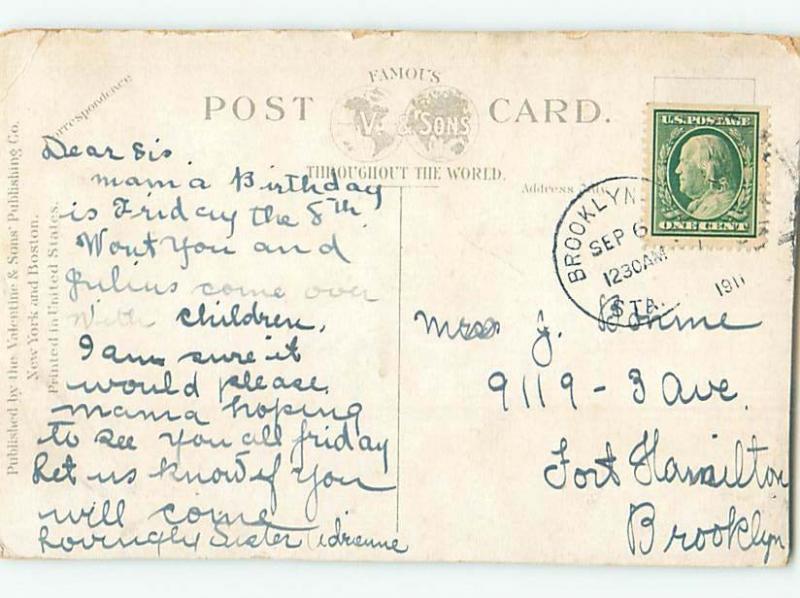 FAMOUS
POST CARD.
V. & SONS
THROUGHOUT THE WORLD.
Correspondence
Address Only
Published by the Valentine & Sons' Publishing Co.
New York and Boston.
Printed in United States.
U.S. POSTAGE
ONE CENT
BROOKLYN
SEP 6
1230AM
1911
STA.
Dear Sis.
mama Birthday
is Friday the 8th
Wont you and
Julius come over
with children.
I am sure it
would please
mama hoping
to see you all friday
Let us know if you
will come
Lovingly Sister Adrienne
Mrs J. Bonme
9119 - 3 Ave.
Fort Hamilton
Brooklyn